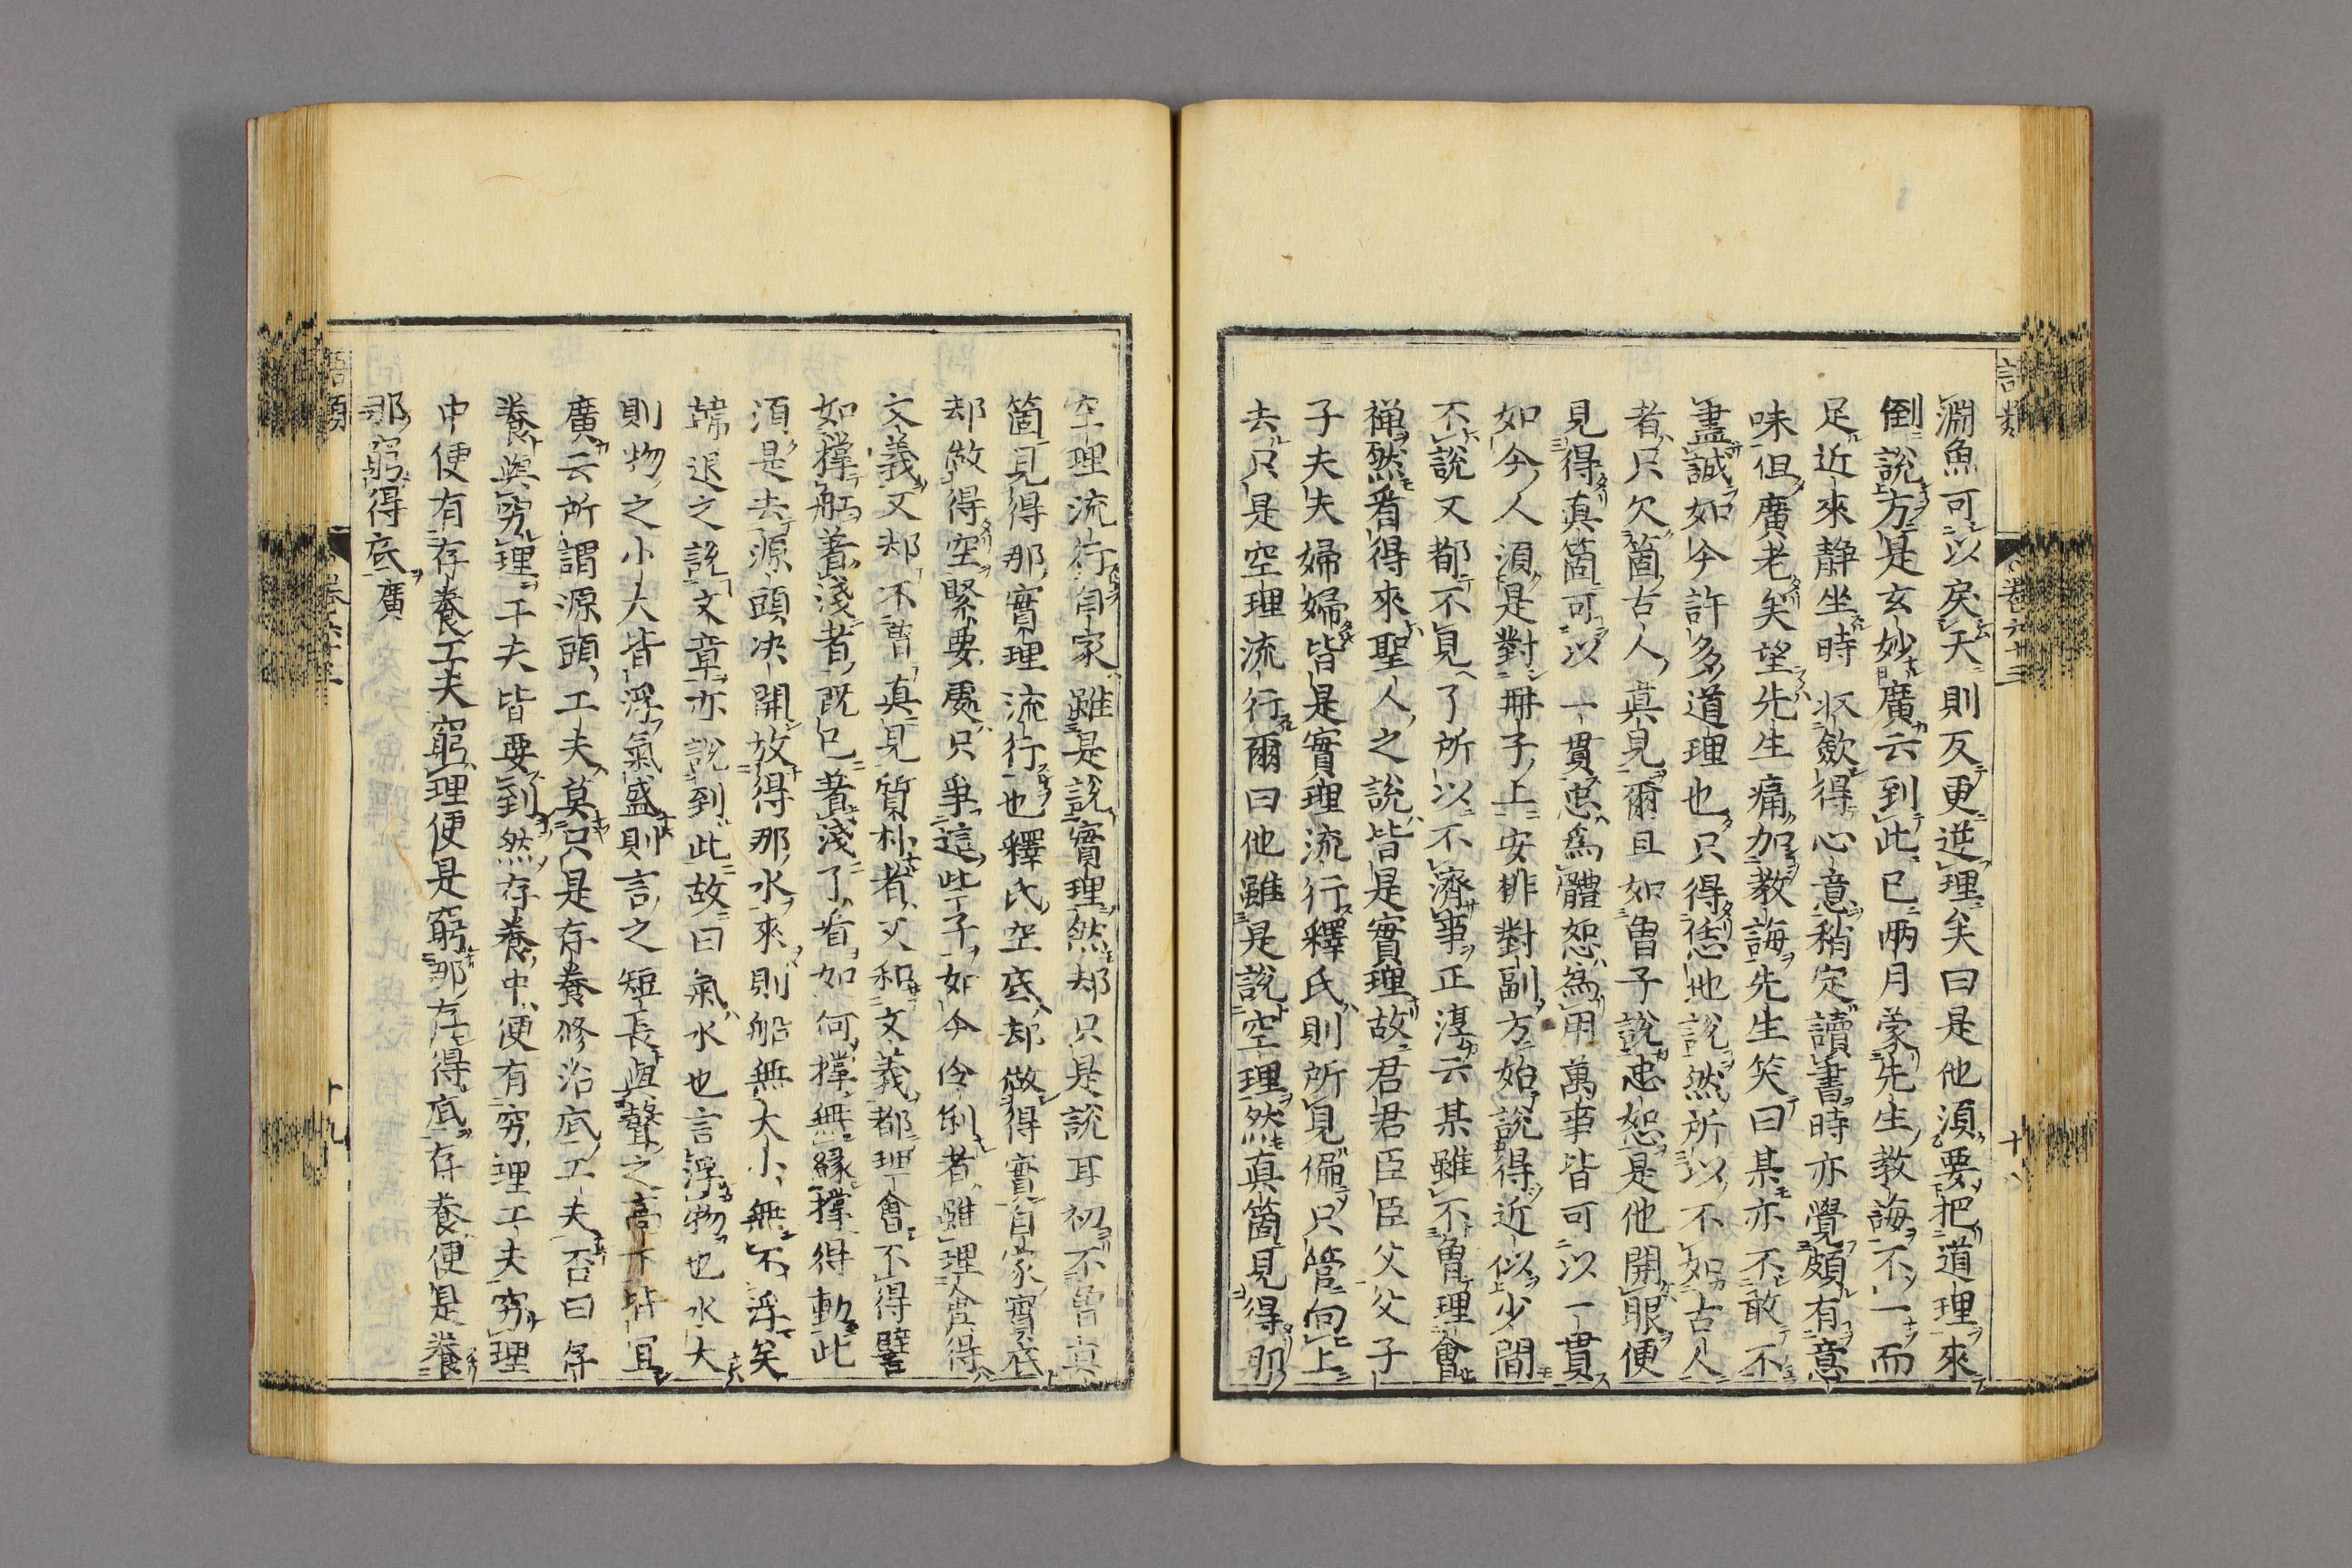 語類
卷六十三
十八
淵魚可以戾天則反更逆理矣曰是他須要把道理來
倒說方是玄妙廣云到此已兩月蒙先生教誨不一而
足近來靜坐時收斂得心意稍定讀書時亦覺頗有意
味但廣老矣望先生痛加教誨先生笑曰某亦不敢不
盡誠如今許多道理也只得恁地說然所以不如古人
者只欠箇古人真見爾且如曾子說忠恕是他開眼便
見得真箇可以一貫忠為體恕為用萬事皆可以一貫
如今人須是對冊子上安排對副方始說得近似少間
不說又都不見了所以不濟事正淳云某雖不曾理會
禪然看得來聖人之說皆是實理故君君臣臣父父子
子夫夫婦婦皆是實理流行釋氏則所見偏只管向上
去只是空理流行爾曰他雖是說空理然真箇見得那
空理流行自家雖是說實理然却只是說耳初不曾真
箇見得那實理流行也釋氏空底却做得實自家實底
却做得空緊要處只爭這些子如今伶俐者雖理會得
文義又却不曾真見質朴者又和文義都理會不得譬
如撐舡著淺者既已著淺了看如何撐無緣撐得動此
須是去源頭决開放得那水來則船無大小無不浮矣
韓退之說文章亦說到此故曰氣水也言浮物也水大
則物之小大皆浮氣盛則言之短長與聲之高下皆宜
廣云所謂源頭工夫莫只是存養修治底工夫否曰存
養與窮理工夫皆要到然存養中便有窮理工夫窮理
中便有存養工夫窮理便是窮那存得底存養便是養
那窮得底廣
語類
卷六十三
十九